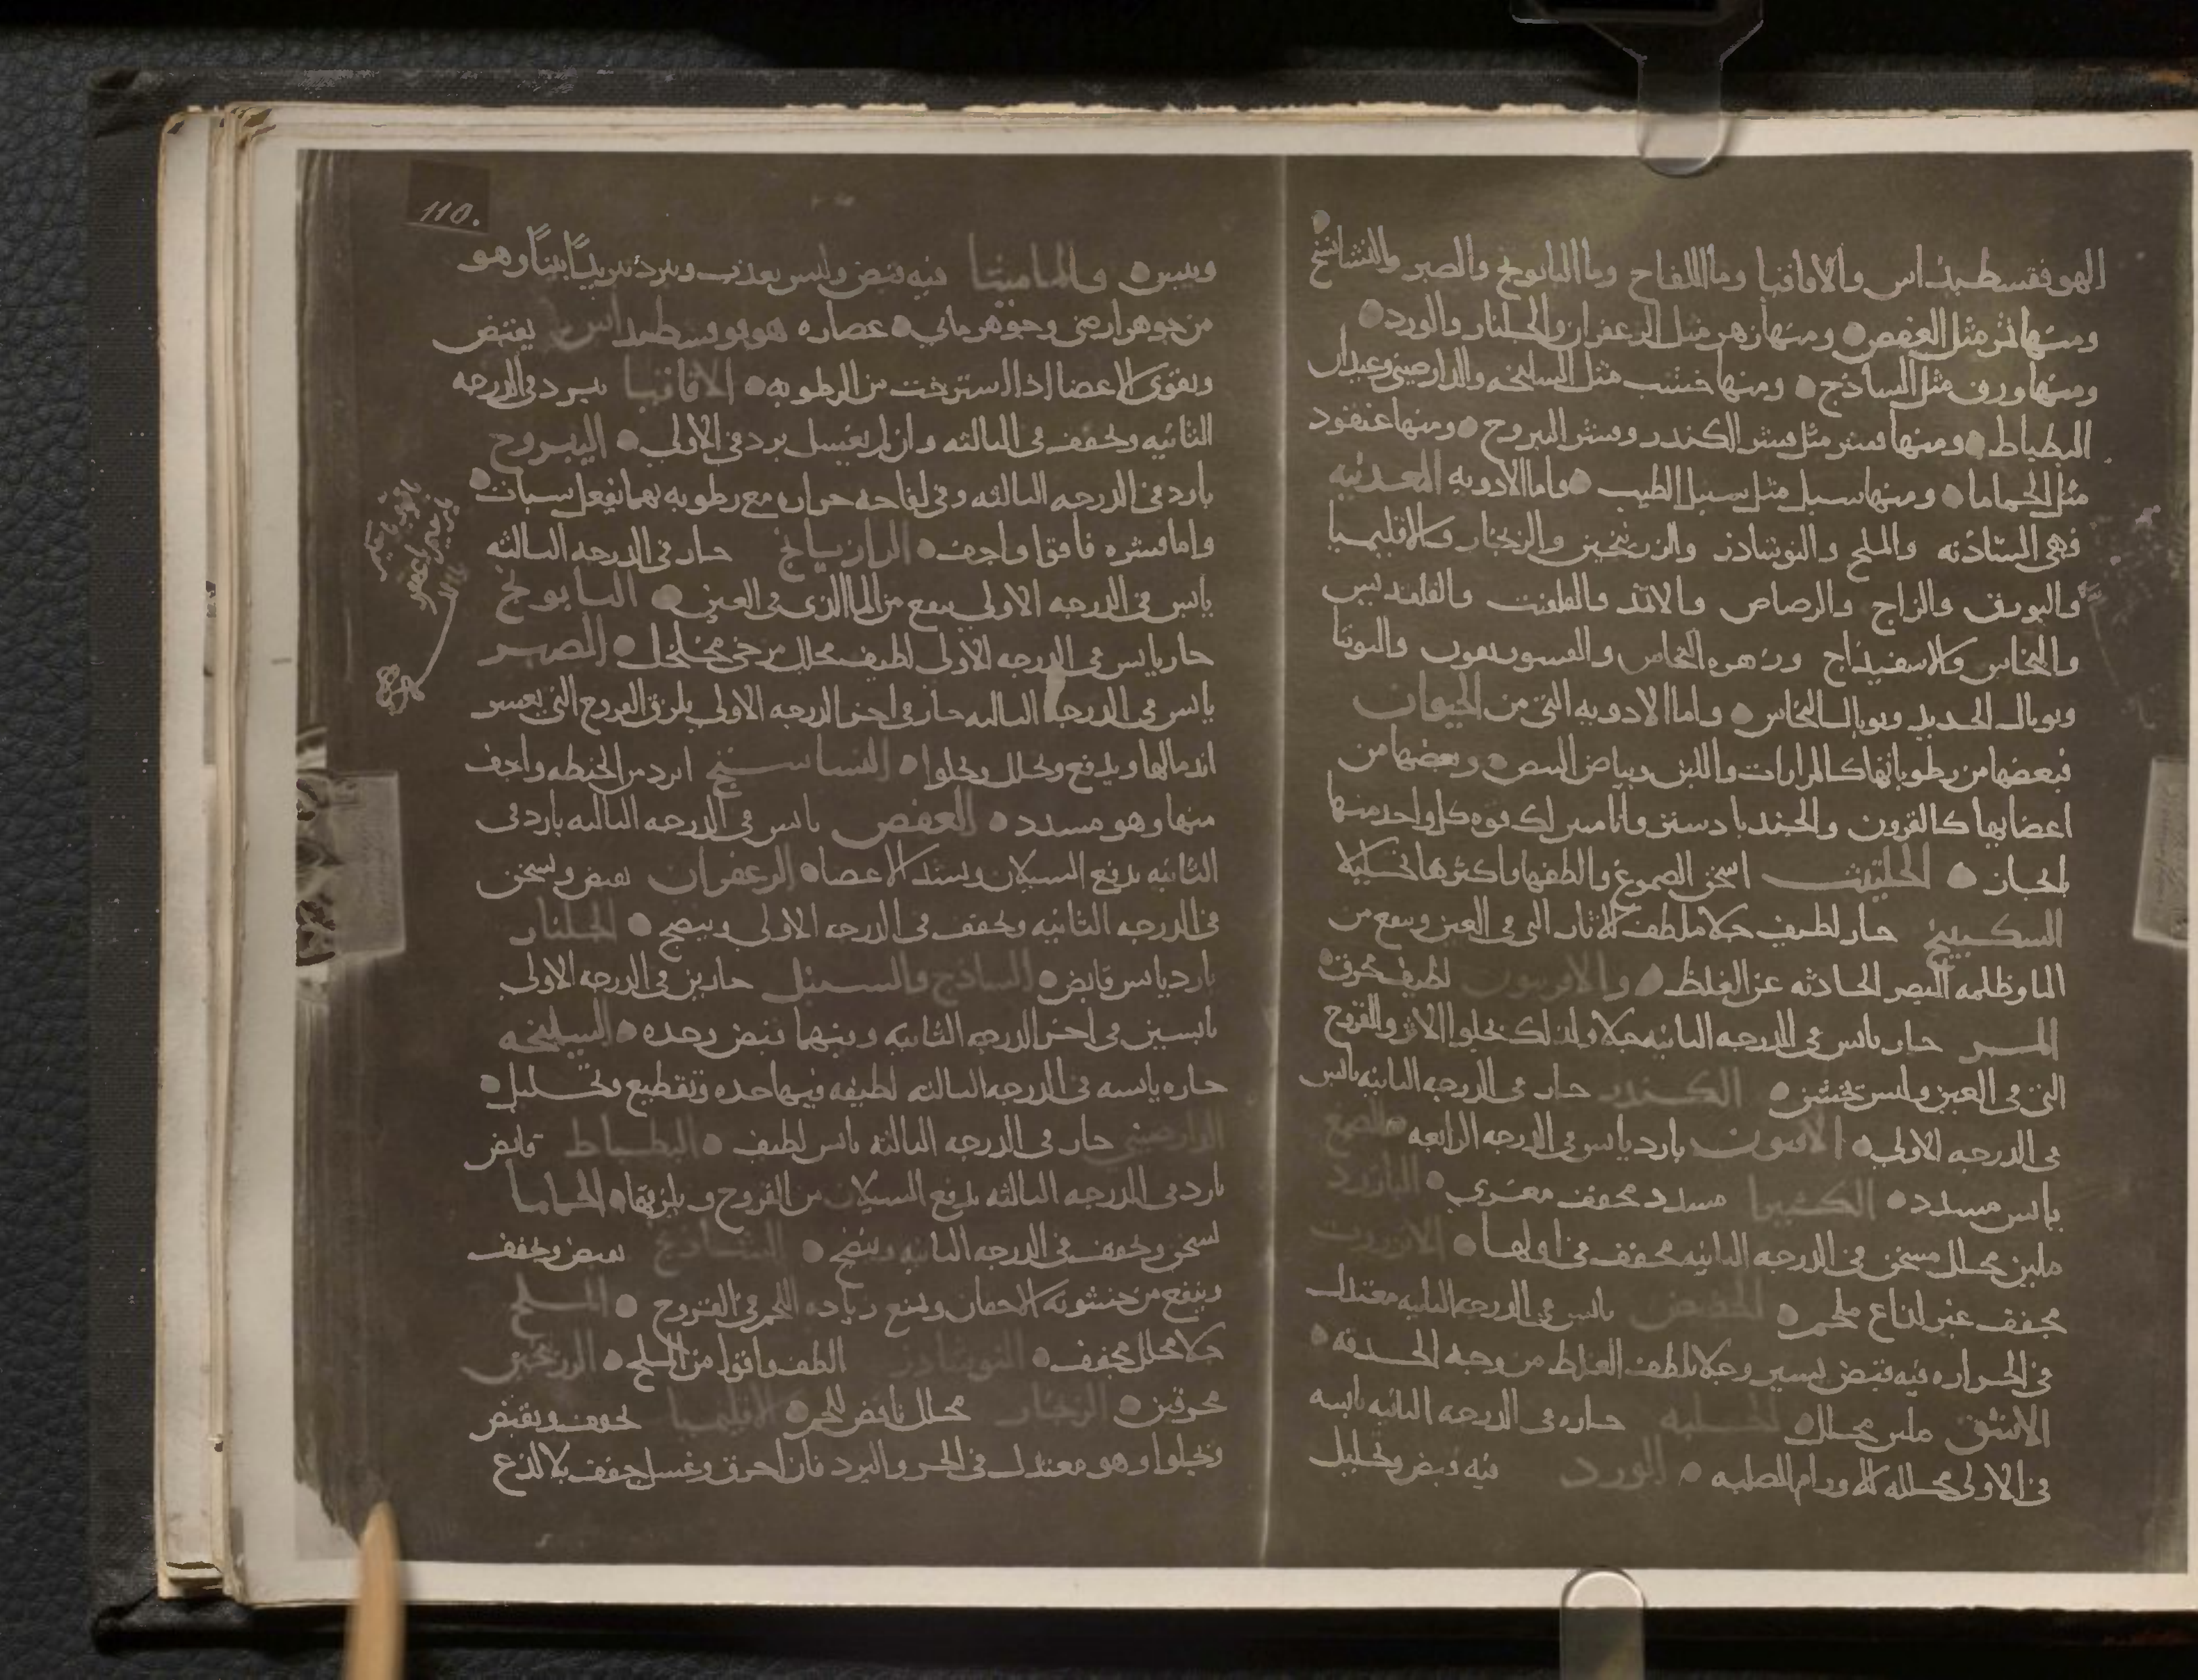 الهوفقسطيداس والاقاقيا وما اللفاح وما البابونج والصبر والنشاشتج
ومنها ثمر مثل العفص ومنها زهر مثل الزعفران والجلنار والورد
ومنها ورق مثل الساذج ومنها خشب مثل السليخه والدارصيني وعيدان
البطباط ومنها قشر مثل قشر الكندر وقشر اليبروح ومنها عنقود
مثل الحماما ومنها سنبل مثل سنبل الطيب واما الادويه المعدنيه
فهي الشاذنه والملح والنوشاذر والزرنيخين والزنجار والاقليميا
والبورق والزاج والرصاص والاثمد والقلقنت والقلقديس
والنحاس والاسفيداج وزهره النحاس والتوتيا
وتوبال الحديد وتوبال النحاس واما الادويه التي من الحيوان
فبعضها من رطوباتها كالمرارات واللبن وبياض البيض وبعضها من
اعضايها كالقرون والجندبادستر وانا مبين لك قوه كل واحد منها
بايجاز الحلتيت اسخن الصموغ والطفها واكثرها تحليلا
السكبينج حار لطيف جلا ملطف للاثار التي في العين وينفع من
الما وظلمه البصر الحادثه عن الغلظ والافربيون لطيف محرق
المـر حار يابس في الدرجه الثانيه جلا ولذلك يجلوا الاثر والقروح
التي في العين وليس بخشن الكندر حار في الدرجه الثانيه يابس
في الدرجه الاولي الافيون بارد يابس في الدرجه الرابعه والصمغ
يابس مسدد الكثيرا مسدد مجفف مغري البارزد
ملين محلل مسخن في الدرجه الثانيه مجفف في اولها الانزروت
مجفف غير لذاع ملحم الحضض يابس في الدرجه الثانيه معتدل
في الحراره فيه قبض يسير وجلا يلطف الغلظ من وجه الحدقه
الاشق ملين محلل الحلبه حاره في الدرجه الثانيه يابسه
في الاولي محلله للاورام الصلبه الورد فيه قبض وتحليل
110.
ويبس والماميثا فيه قبض وليس بعذب ويبرد تبريدًا بينًا وهو
من جوهر ارضي وجوهر مائي عصاره هوفوقسطيداس يقبض
ويقوي الاعضا اذا استرخت من الرطوبه الاقاقيا يبرد في الدرجه
الثانيه ويجفف في الثالثه وان لم يغسل برد في الاولي اليبروح
بارد في الدرجه الثالثه وفي لفاحه حراره مع رطوبه بهما يفعل سبات
واما قشره فاقوا واجف الرازيانج حار في الدرجه الثالثه
يابس في الدرجه الاولي ينفع من الما الذي في العين البابونج
حار يابس في الدرجه الاولي لطيف محلل مرخي مخلخل الصبر
يابس في الدرجه الثالثه حار في اخر الدرجه الاولي يلزق القروح التي يعسر
اندمالها ويدفع ويحلل ويجلوا النشاستج ابرد من الحنطه واجف
منها وهو مسدد العفص يابس في الدرجه الثالثه بارد في
الثانيه يدفع السيلان ويشد الاعضا الزعفران يقبض ويسخن
في الدرجه الثانيه ويجفف في الدرجه الاولي وينضج الجلنار
بارد يابس قابض الساذج والسنبل حارين في الدرجه الاولي
يابسين في اخر الدرجه الثانيه وفيهما قبض وحده السليخه
حاره يابسه في الدرجه الثالثه لطيفه فيها حده وتقطيع وتحليل
الدارصيني حار في الدرجه الثالثه يابس لطيف البطباط قابض
بارد في الدرجه الثالثه يدفع السيلان من القروح ويلزقها الحماما
يسخن ويجفف في الدرجه الثانيه وينضج الشاذنج يقبض ويجفف
وينفع من خشونه الاجفان ويمنع زياده اللحم في القروح الملح
جلا محلل مجفف النوشاذر الطف واقوا من الملح الزرنيخين
محرقين الزنجار محلل ناقص للحم الاقليميا يجفف ويقبض
ويجلوا وهو معتدل في الحر والبرد فان احرق وغسل جفف بلا لذع